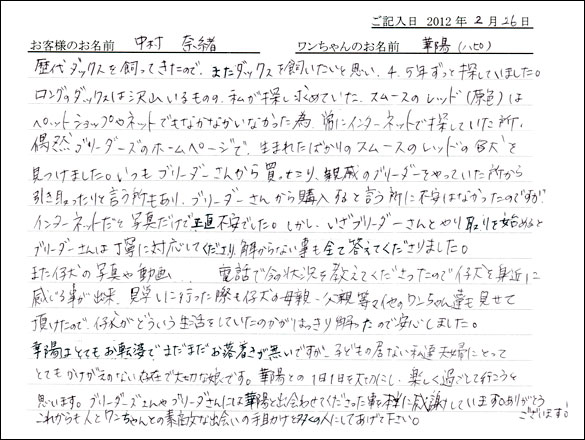 ご記入日 2012 年 2 月 26 日
お客様のお名前 中村 奈緒 ワンちゃんのお名前 華陽(ハピ)
歴代ダックスを飼ってきたので、またダックスを飼いたいと思い、4、5年ずっと探していました。
ロングのダックスは沢山いるものの、私が探し求めていた、スムースのレッド(原色)は
ペットショップやネットでもなかなかいなかった為、常にインターネットで探していた所、
偶然ブリーダーズのホームページで、生まれたばかりのスムースのレッドの仔犬を
見つけました。いつもブリーダーさんから買ったり、親戚のブリーダーをやっていた所から
引き取ったりと言う所もあり、ブリーダーさんから購入すると言う所に不安はなかったのですが
インターネットだと写真だけで正直不安でした。しかし、いざブリーダーさんとやり取りを始めると
ブリーダーさんは丁寧に対応してくださり、解からない事も全て答えてくださりました。
また仔犬の写真や動画 電話で今の状況を教えてくださったので仔犬を身近に
感じる事が出来、見学に行った際も仔犬の母親・父親等々他のワンちゃん達も見せて
頂けたので、仔犬がどういう生活をしていたのかがはっきり解ったので安心しました。
華陽はとてもお転婆でまだまだお落着きが無いですが、子どもの居ない私達夫婦にとって
とてもかけがえのない存在で大切な娘です。華陽との1日1日を大切にし、楽しく過ごして行こうと
思います。ブリーダーズさんやブリーダーさんには華陽と出会わせてくださった事を本当に感謝しています。ありがとう
ございます!
これからも人とワンちゃんとの素敵な出会いの手助けを多くの人にしてあげて下さい。